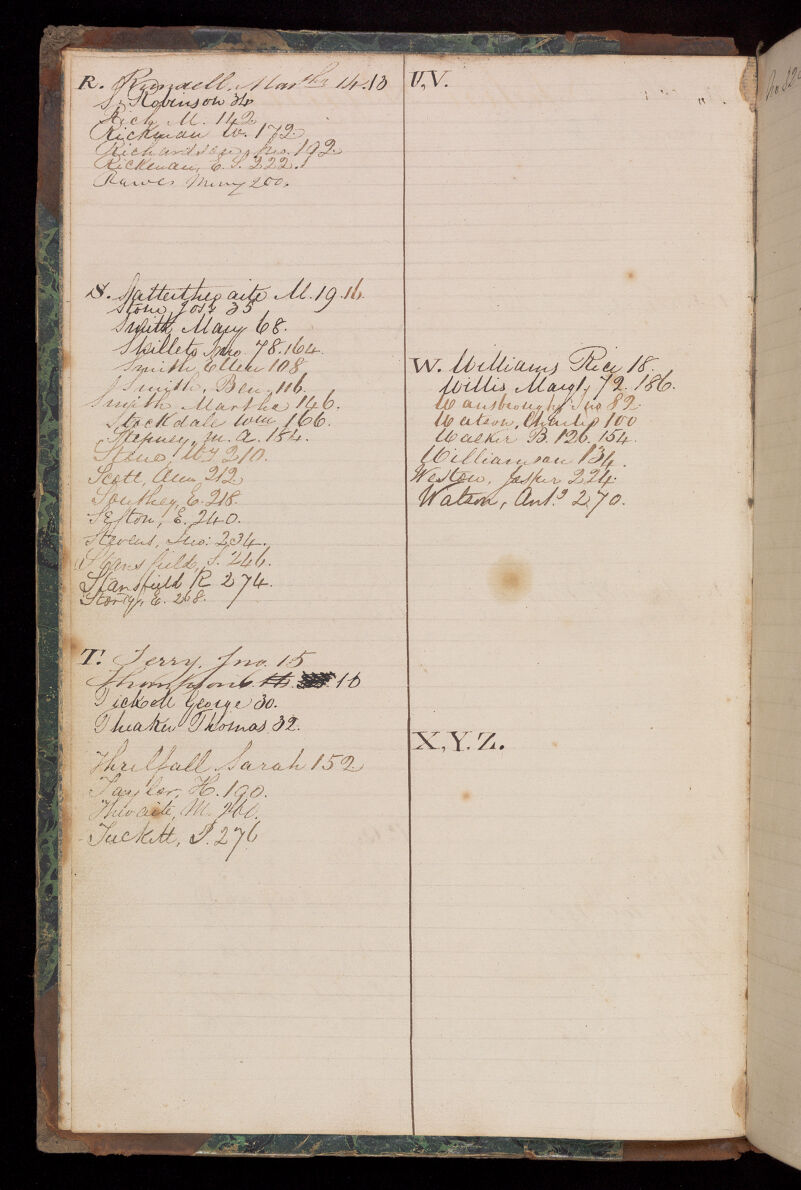 R. Rundell, Martha 14.13
S. Robinson 34
Rich M. 142
Rickman W. 172
Richardson, Jno. 192
Rickman, E. S. 222.
Rawes Mary 200.
S. Satterthwaite M. 19.16.
Stone Josh 35
Smith Mary 68.
Skillets Jno. 78.164.
Smith, Ellen 108
Smith, Ben. 116.
Smith Martha 146.
Stockdale Wm 166.
Stepney, M. A. 184.
Stone W 210.
Scott, Ann 212
Southey, E. 218.
Sefton, E. 240.
Stevens, Jno: 234.
Stansfield, S. 246.
Stansfield R 274.
Storry, E. 268.
T. Terry, Jno. 15
Thompson 16
Tickell George 30.
Theaker Thomas 32.
Threlfall Sarah 152
Taylor, H. 190.
Thwaite, M. 260.
Tuckett, P. 276
U,V.
W. Williams Rice 18.
Willis Margt, 72. 186.
Wansbrough Jno 82.
Watson, Charles 100
Walker B. 126, 154.
Williamson 134.
Weston, Jasper 224.
Watson, Anto 270.
X,Y.Z.